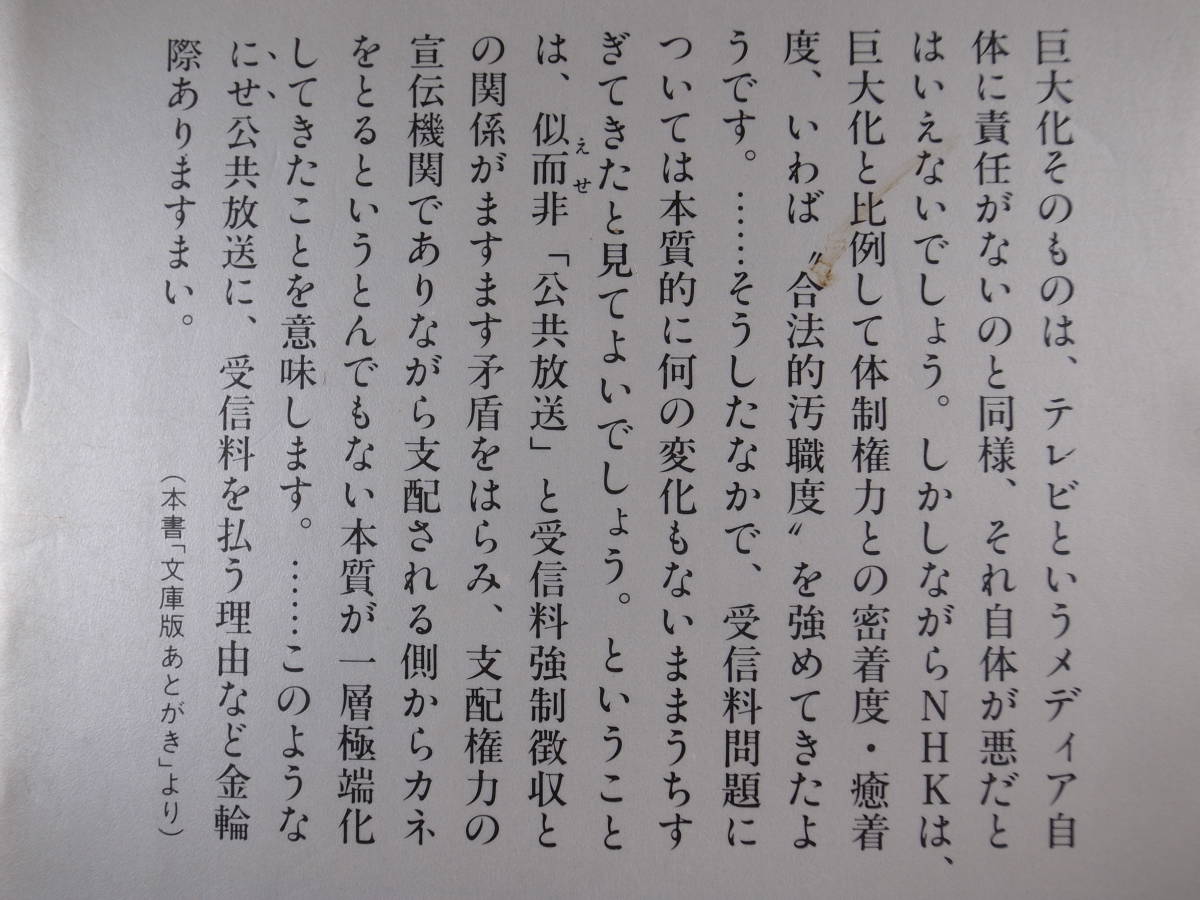 巨大化そのものは、テレビというメディア自
体に責任がないのと同様、それ自体が悪だと
はいえないでしょう。しかしながらNHKは、
巨大化と比例して体制権力との密着度・癒着
度、いわば〝合法的汚職度〟を強めてきたよ
うです。……そうしたなかで、受信料問題に
ついては本質的に何の変化もないままうちす
ぎてきたと見てよいでしょう。ということ
は、似而非「公共放送」と受信料強制徴収と
えせ
の関係がますます矛盾をはらみ、支配権力の
宣伝機関でありながら支配される側からカネ
をとるというとんでもない本質が一層極端化
してきたことを意味します。……このような
にせ公共放送に、受信料を払う理由など金輪
際ありますまい。
（本書「文庫版あとがき」より）